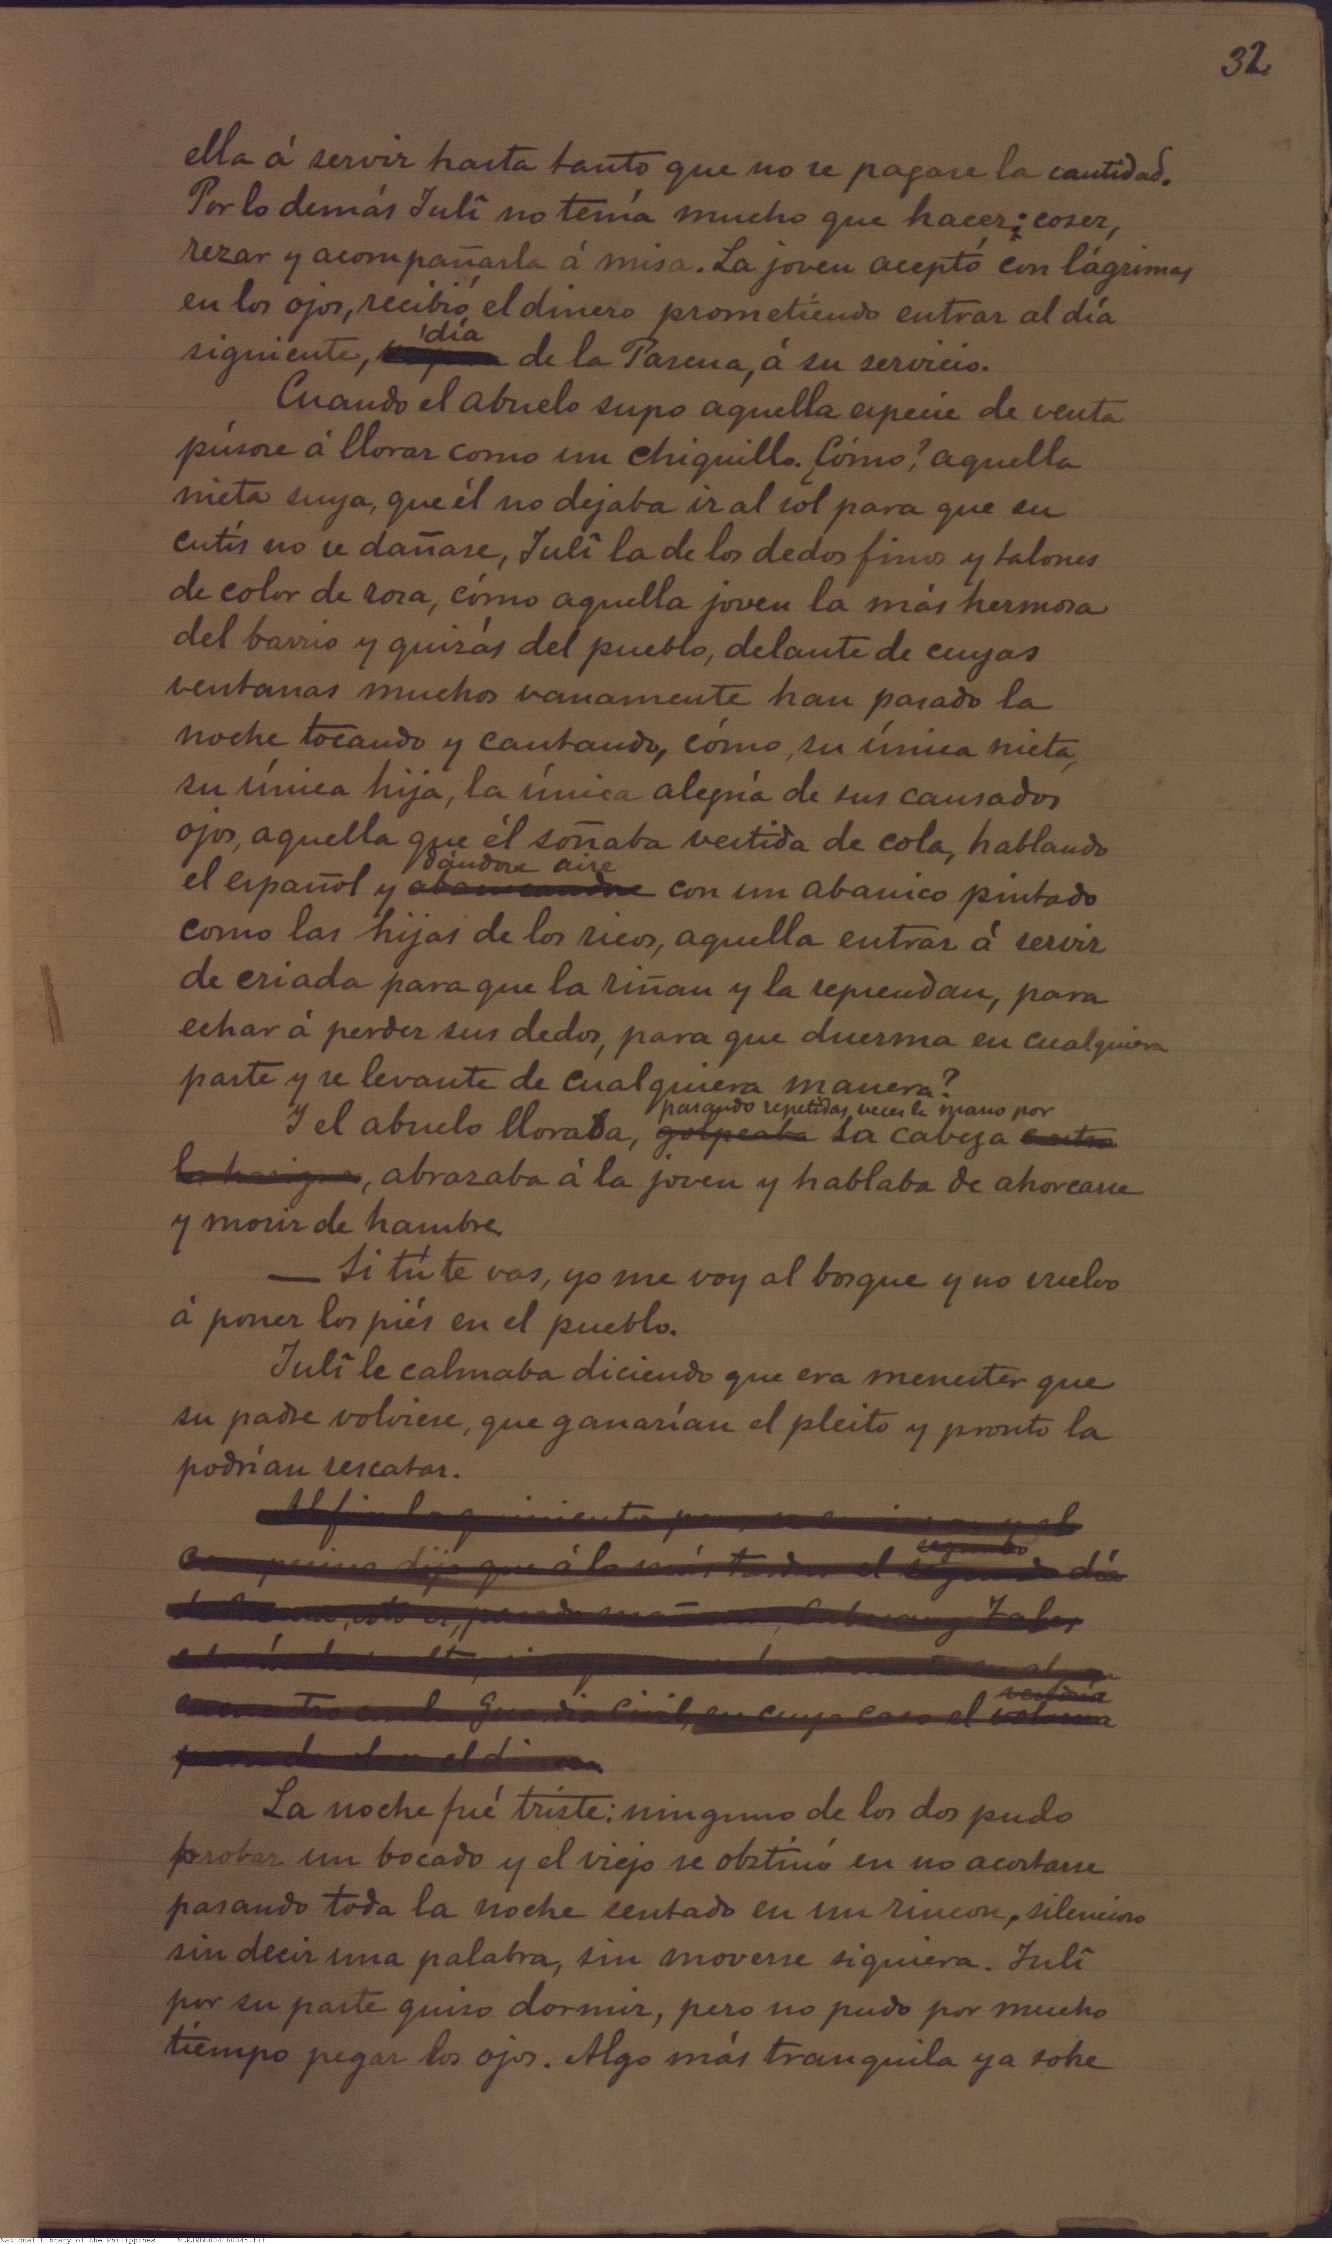 32
ella á servir hasta tanto que no se pagase la cantidad.
Por lo demás Julî no tenía mucho que hacer: coser,
rezar y acompañarla á misa. La joven aceptó con lágrimas
en los ojos, recibió el dinero prometiendo entrar al día
día
siguiente, de la Pascua, á su servicio.
Cuando el abuelo supo aquella especie de venta
púsose á llorar como un chiquillo. ¿Cómo? aquella
nieta suya, que él no dejaba ir al sol para que su
cutis no se dañase, Julî la de los dedos finos y talones
de color de rosa, cómo aquella joven la más hermosa
del barrio y quizás del pueblo, delante de cuyas
ventanas muchos vanamente han pasado la
noche tocando y cantando, cómo, su única nieta,
su única hija, la única alegría de sus cansados
ojos, aquella que él soñaba vestida de cola, hablando
dándose aire
el español y abanicandose con un abanico pintado
como las hijas de los ricos, aquella entrar á servir
de criada para que la riñan y la reprendan, para
echar á perder sus dedos, para que duerma en cualquiera
parte y se levante de cualquiera manera?
pasando repetidas veces la mano por
Y el abuelo lloraba, golpeaba la cabeza contra
, abrazaba á la joven y hablaba de ahorcarse
y morir de hambre.
— Si tú te vas, yo me voy al bosque y no vuelvo
á poner los piés en el pueblo.
Julî le calmaba diciendo que era menester que
su padre volviese, que ganarían el pleito y pronto la
podrían rescatar.
Al fin los quinientos y el
dijo que á lo más tardar el segundo día
segundo
Cabesang Tales
Guardia Civil, en cuyo caso el
vendría
el dinero
La noche fué triste: ninguno de los dos pudo
probar un bocado y el viejo se obstinó en no acostarse
pasando toda la noche sentado en un rincon, silencioso
sin decir una palabra, sin moverse siquiera. Julî
por su parte quiso dormir, pero no pudo por mucho
tiempo pegar los ojos. Algo más tranquila ya sobre
National Library of the Philippines